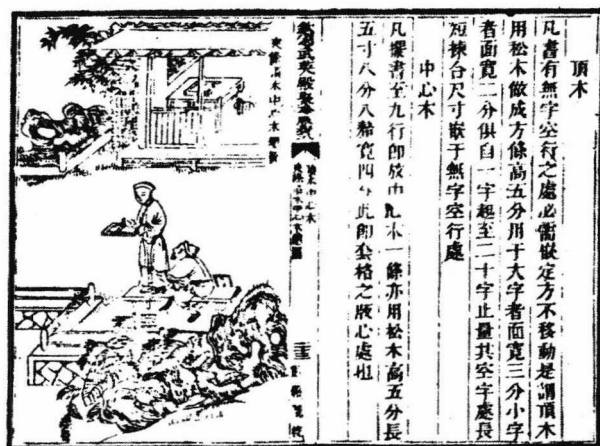 頂木
凡書有無字空行之處必需嵌定方不移動是謂頂木
用松木做成方條高五分用于大字者面寬三分小字
者面寬二分俱自一字起至二十字止量其空字處長
短揀合尺寸嵌于無字空行處
中心木
凡擺書至九行即放中心木一條亦用松木高五分長
五寸八分八釐寬四分此即套格之版心處也
欽定武英殿聚珍版程式
頂木中心木
夾條頂木中心木總圖
夾條頂木中心木總圖